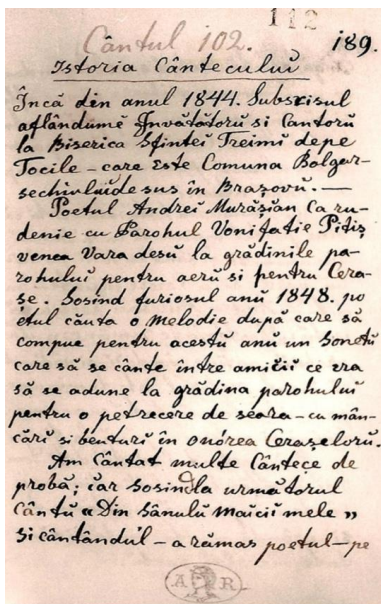 112
Cântul 102. 189.
Istoria Cânteculuĭ
Încă din anul 1844. Subscrisul
aflândumĕ Învătătorŭ si Cantorŭ
la Biserica Sfintei Treimi depe
Tocile – care Este Comuna Bolgar-
sechiuluĭ de sus în Brașovŭ. —
Poetul Andreĭ Murășian Ca ru-
denie cu Parohul Vonifatie Pitiș
venea Vara desŭ la grădinile pa-
rohuluĭ pentru aerŭ si pentru Cera-
șe. Sosind furiosul anŭ 1848. po
etul căuta o Melodie după care să
compue pentru acestŭ anŭ un Sonetŭ
care să se cânte între amiciĭ ce vra
să se adune la grădina parohuluĭ
pentru o petrecere de seara – cu mân-
cărĭ si beuturĭ în onórea Cerașelorŭ.
Am Cântat multe Cântece de
probă; iar Sosind la următorul
Cântŭ „Din Sânulŭ Maiciĭ mele"
Si cântândul – a rămas poetul – pe
A R